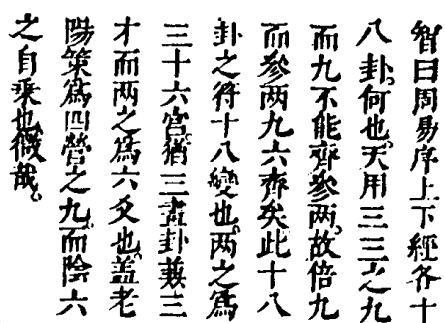 智曰周易序上下經各十
八卦何也天用三三之九
而九不能齊參兩故倍九
而參兩九六齊矣此十八
卦之符十八變也兩之爲
三十六宮猶三畫卦兼三
才而兩之爲六爻也蓋老
陽策爲四營之九而陰六
之自乘也微哉